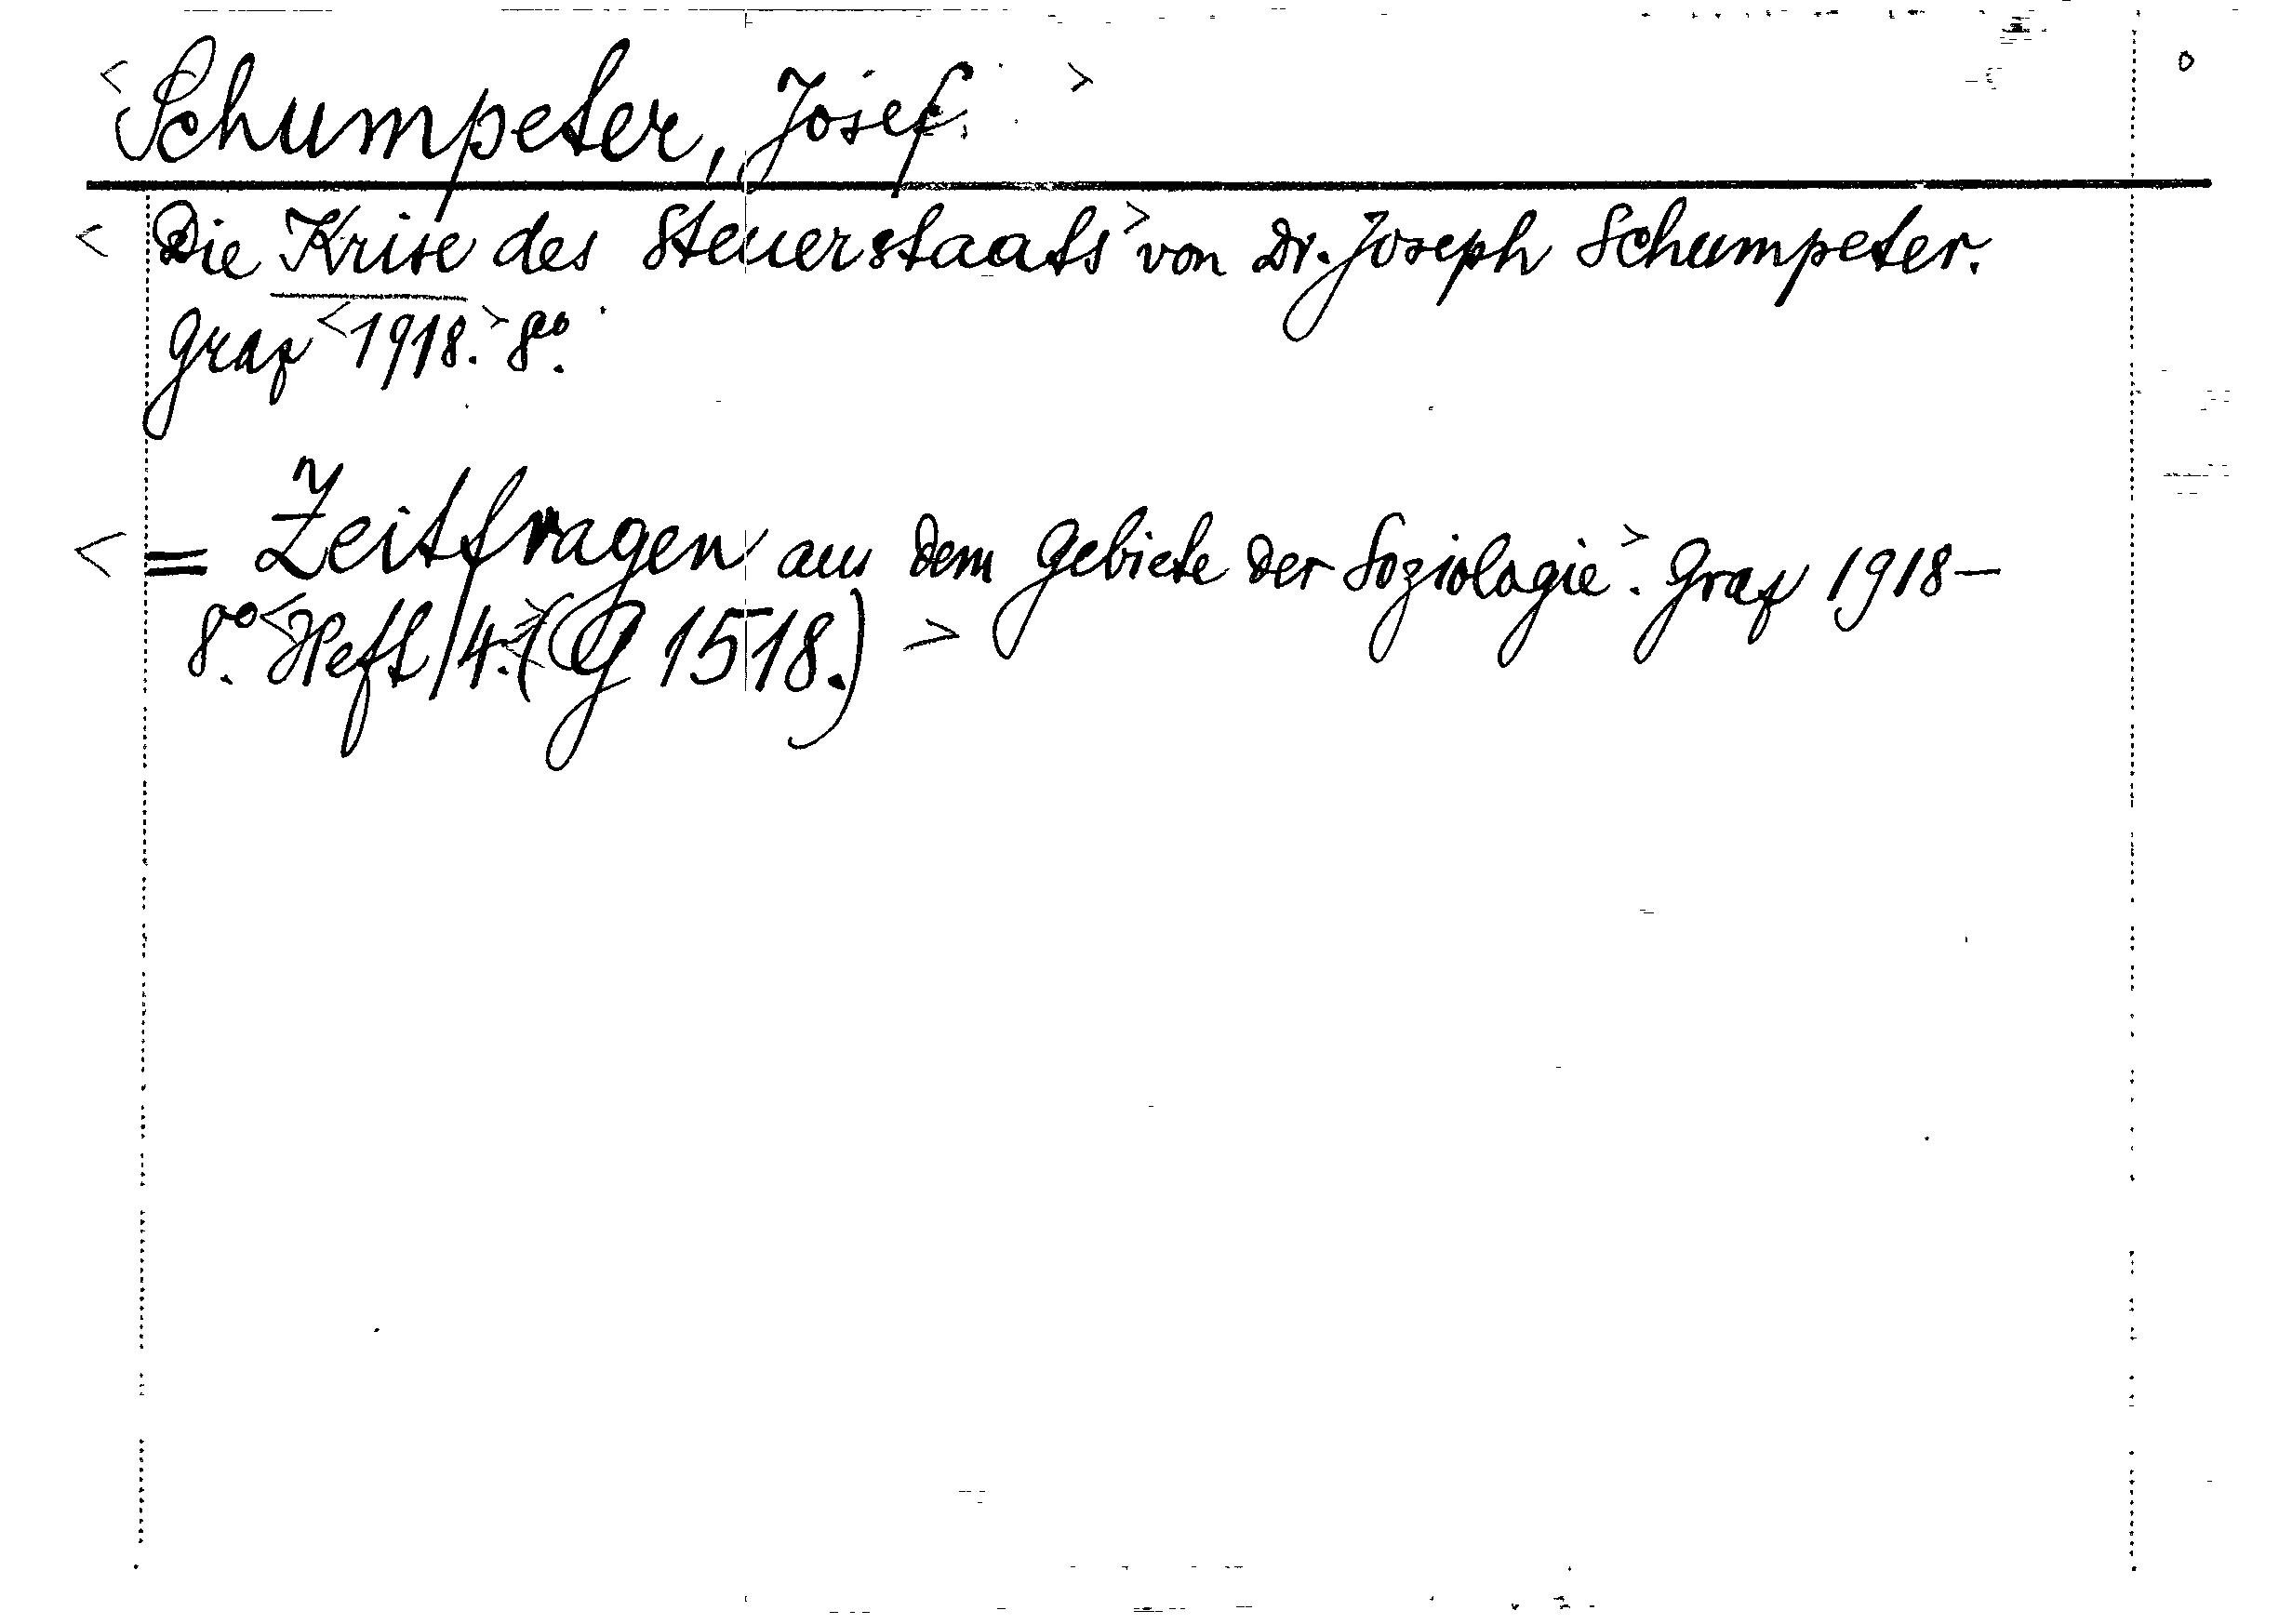 <Schumpeter, Josef.>
<Die Krise des Steuerstaats> von Dr. Joseph Schumpeter.
Graz <1918.> 8°.
<= Zeitfragen aus dem Gebiete der Soziologie>. Graz 1918—
8°. <Heft 4.> (G 1518.) >